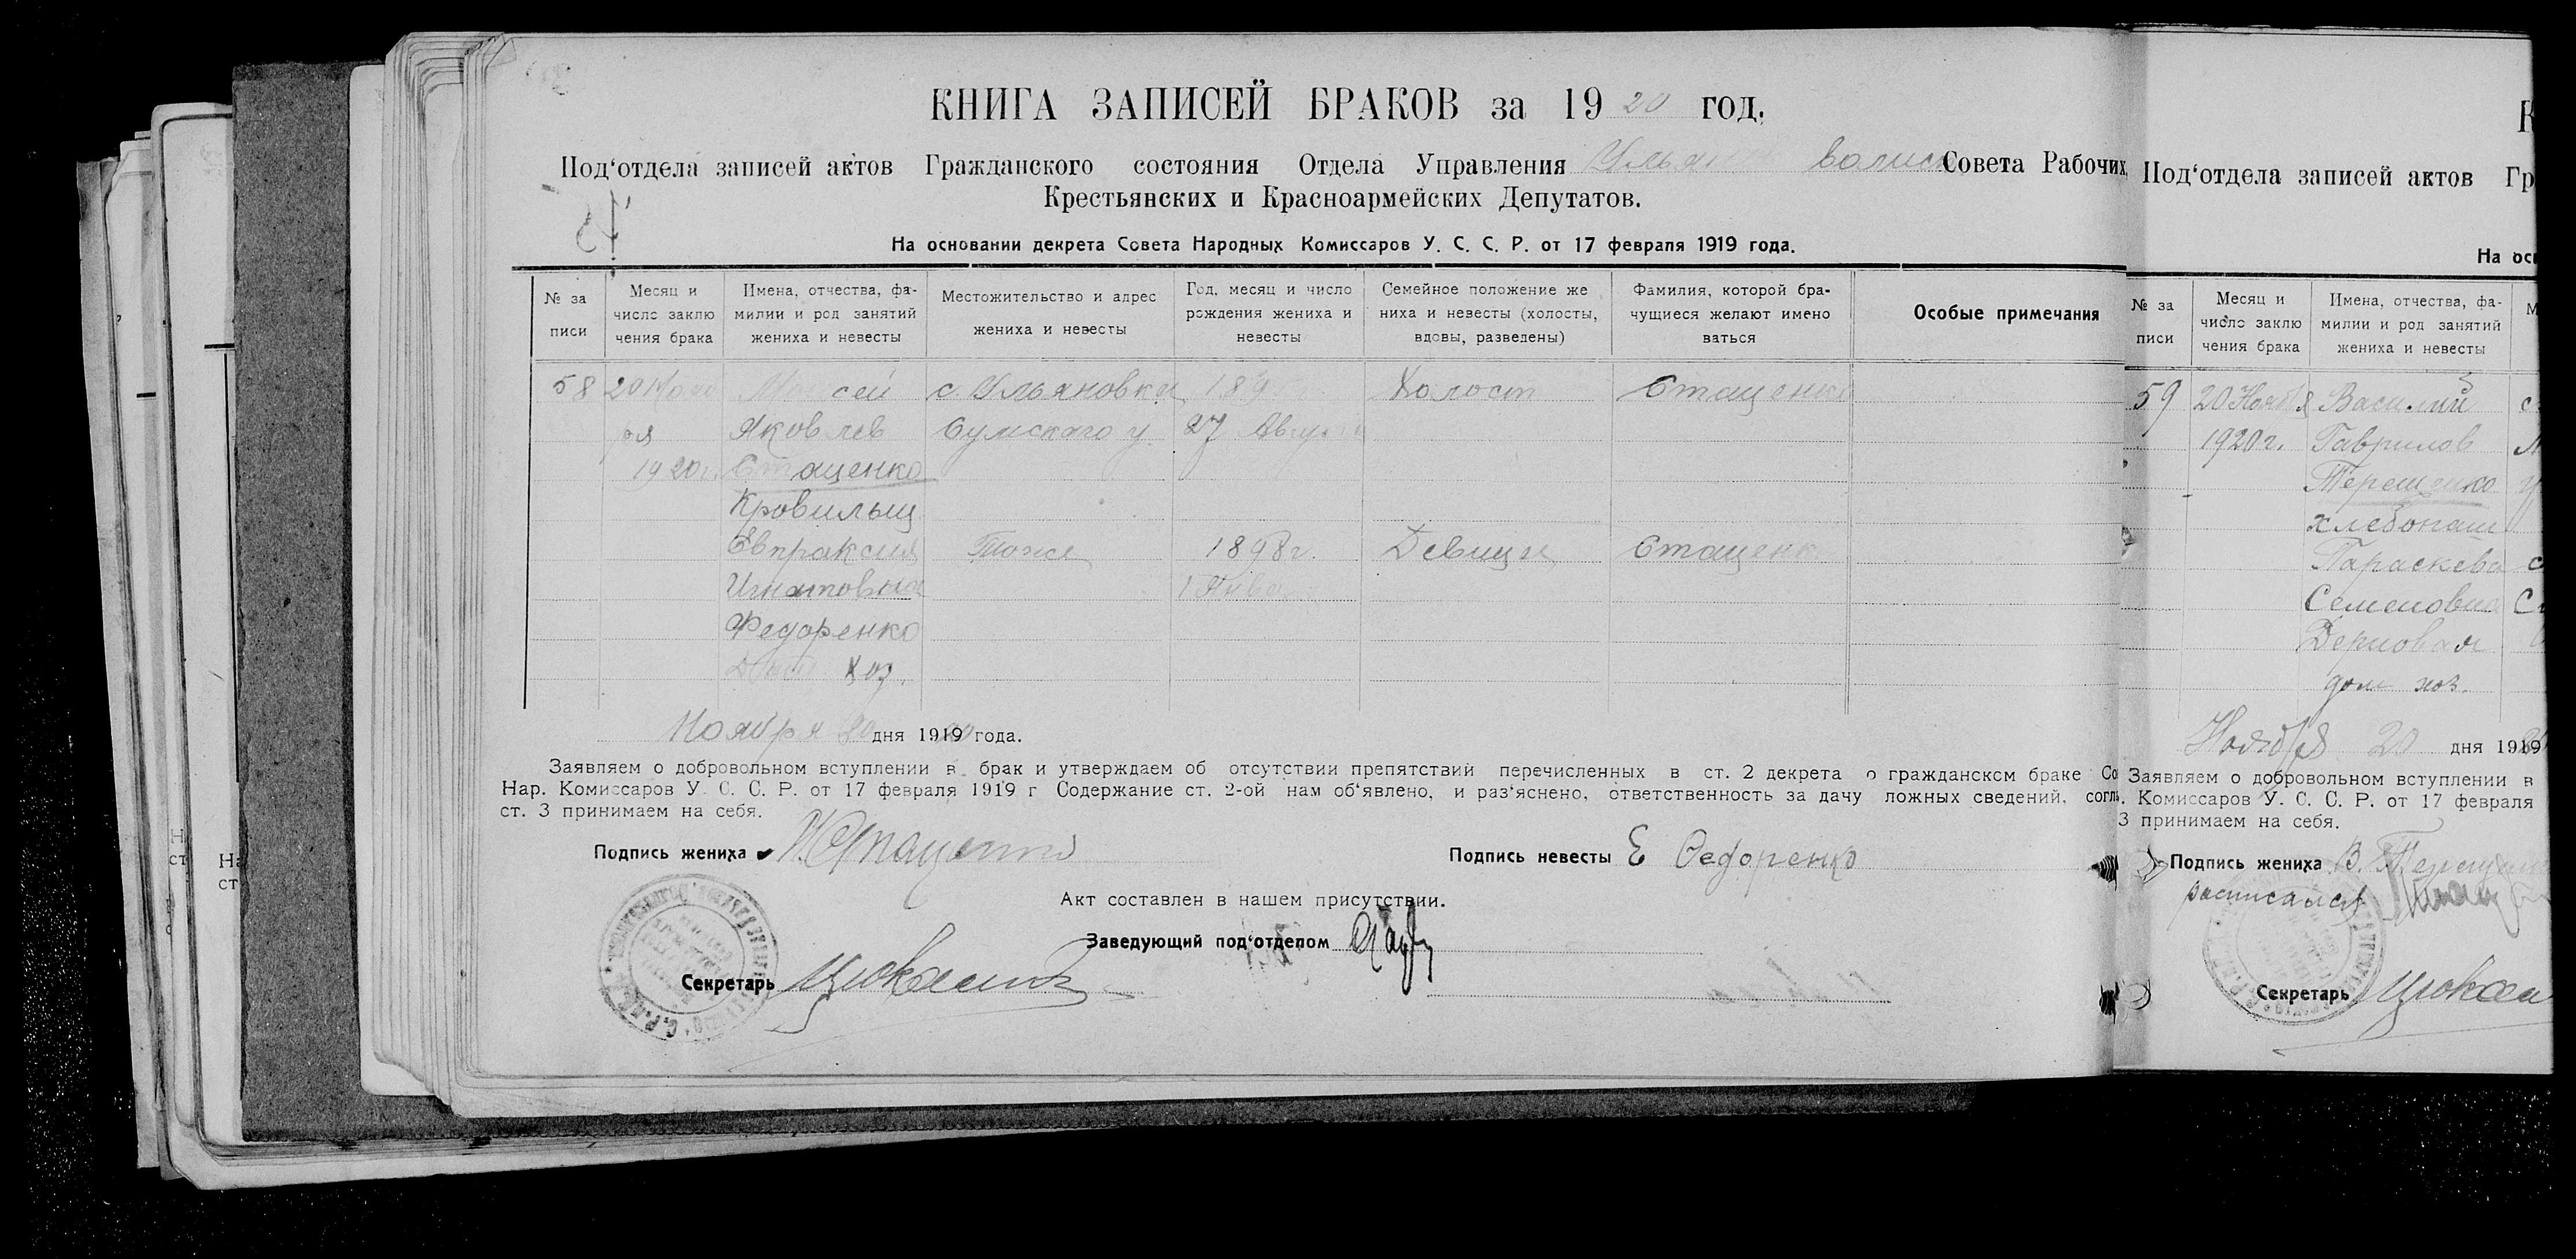 КНИГА ЗАПИСЕЙ БРАКОВ за 1920 год.
Под‘отдела записей актов Гражданского состояния Отдела Управления волисп Совета Рабочих,
Крестьянских и Красноармейских Депутатов.
На основании декрета Совета Народных Комиссаров У. С. С. Р. от 17 февраля 1919 года.
№ за писи
Месяц и число заклю чения брака
Имена, отчества, фа- милии и род занятий жениха и невесты
Местожительство и адрес жениха и невесты
Год, месяц и число рождения жениха и невесты
Семейное положение же ниха и невесты (холосты, вдовы, разведены)
Фамилия, которой бра- чущиеся желают имено ваться
Особые примечания
58 20 Нояб сей с. Ульяновка 189 Холост Стащенко
ря Яковлев Сумскаго у. 27 Августа
1920г. Стащенко
Кровильщ
Евпраксия Тоже 1898г. Девица Стащенк
Игнатовна 1 Янва
Федоренко
Дом хоз.
Ноября 20 дня 1919 20 года.
Заявляем о добровольном вступлении в брак и утверждаем об отсутствии препятствий перечисленных в ст. 2 декрета о гражданском браке Со
Нар. Комиссаров У. С. С. Р. от 17 февраля 1919 г Содержание ст. 2-ой нам об‘явлено, и раз‘яснено, ответственность за дачу ложных сведений, согл
ст. 3 принимаем на себя.
Подпись жениха Стащенко Подпись невесты Е Федоренко
Акт составлен в нашем присутствии.
Заведующий под‘отделом
Секретарь
К
Под‘отдела записей актов Гр
На осн
№ за писи
Месяц и число заклю чения брака
Имена, отчества, фа- милии и род занятий жениха и невесты
М
59 20 Ноября Василий с.
1920г. Гаврилов
Терещенко
хлебопаш
Параскева с
Семеновна
Дерновая
дом хоз.
Ноября 20 дня 1919
Заявляем о добровольном вступлении в
. Комиссаров У. С. С. Р. от 17 февраля
3 принимаем на себя.
Подпись жениха В. Терещен
расписался
Секретарь
На
ст